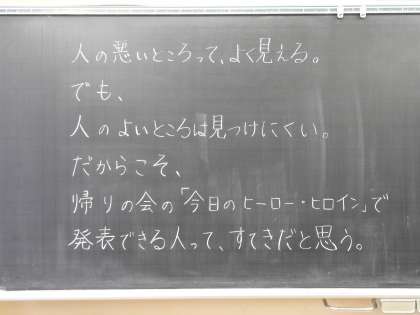 人の悪いところって、よく見える。
でも、
人のよいところは見つけにくい。
だからこそ、
帰りの会の「今日のヒーロー・ヒロイン」で
発表できる人って、すてきだと思う。